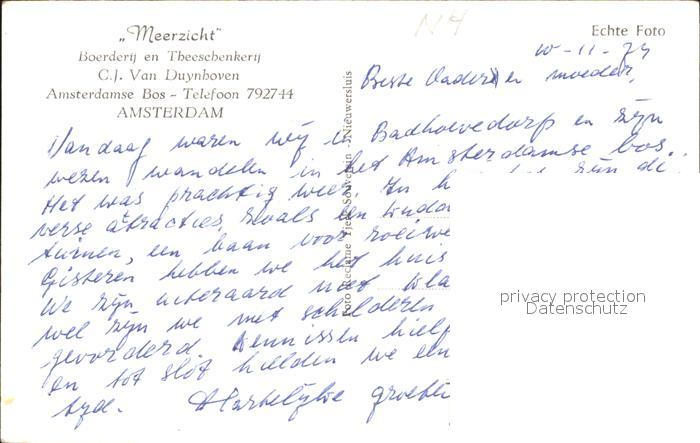 „Meerzicht"
Boerderij en Theeschenkerij
C.J. Van Duynhoven
Amsterdamse Bos - Telefoon 792744
AMSTERDAM
N4
Echte Foto
10-11-74
Beste Vader en moeder,
Vandaag waren wij in Badhoevedorp en zijn
wezen wandelen in het Amsterdamse bos.
Het was prachtig weer. In h zijn di
verse attracties, zoals een
turnen, een baan voor roeiwe
Gisteren hebben we het huis
We zijn uiteraard niet kla
wel zijn we met schilderen
gevorderd. Kennissen hielp
en tot slot hielden we een
tyd. Hartelijke groete
Foto Reclame Tjeerd Nieuwersluis
privacy protection
Datenschutz